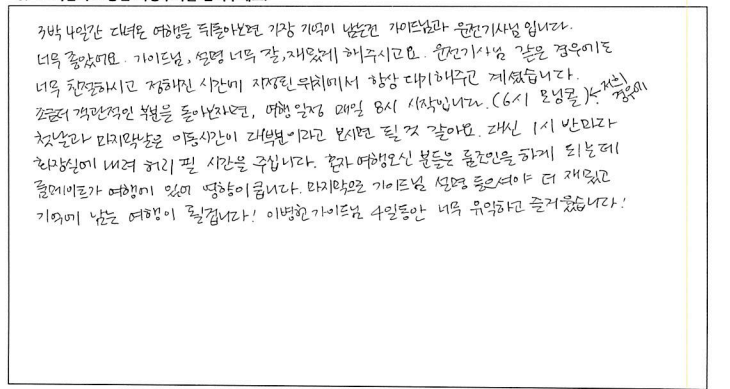 3박 4일간 다녀온 여행을 뒤돌아보면 가장 기억이 남는건 가이드님과 운전기사님 입니다.
너무 좋았어요. 가이드님, 설명 너무 잘, 재밌게 해주시고요. 운전기사님 같은 경우에도
너무 친절하시고 정해진 시간에 지정된 위치에서 항상 대기해주고 계셨습니다.
조금더 객관적인 부분을 돌아보자면, 여행 일정 매일 8시 시작입니다. (6시 모닝콜) ← 저희 경우에
첫날과 마지막날은 이동시간이 대부분이라고 보시면 될 것 같아요. 대신 1시 반마다
화장실에 내려 허리 필 시간을 주십니다. 혼자 여행오신 분들은 룸조인을 하게 되는데
룸메이트가 여행에 있어 영향이 큽니다. 마지막으로 가이드님 설명 들으셔야 더 재밌고
기억에 남는 여행이 될겁니다! 이병헌가이드님 4일동안 너무 유익하고 즐거웠습니다!